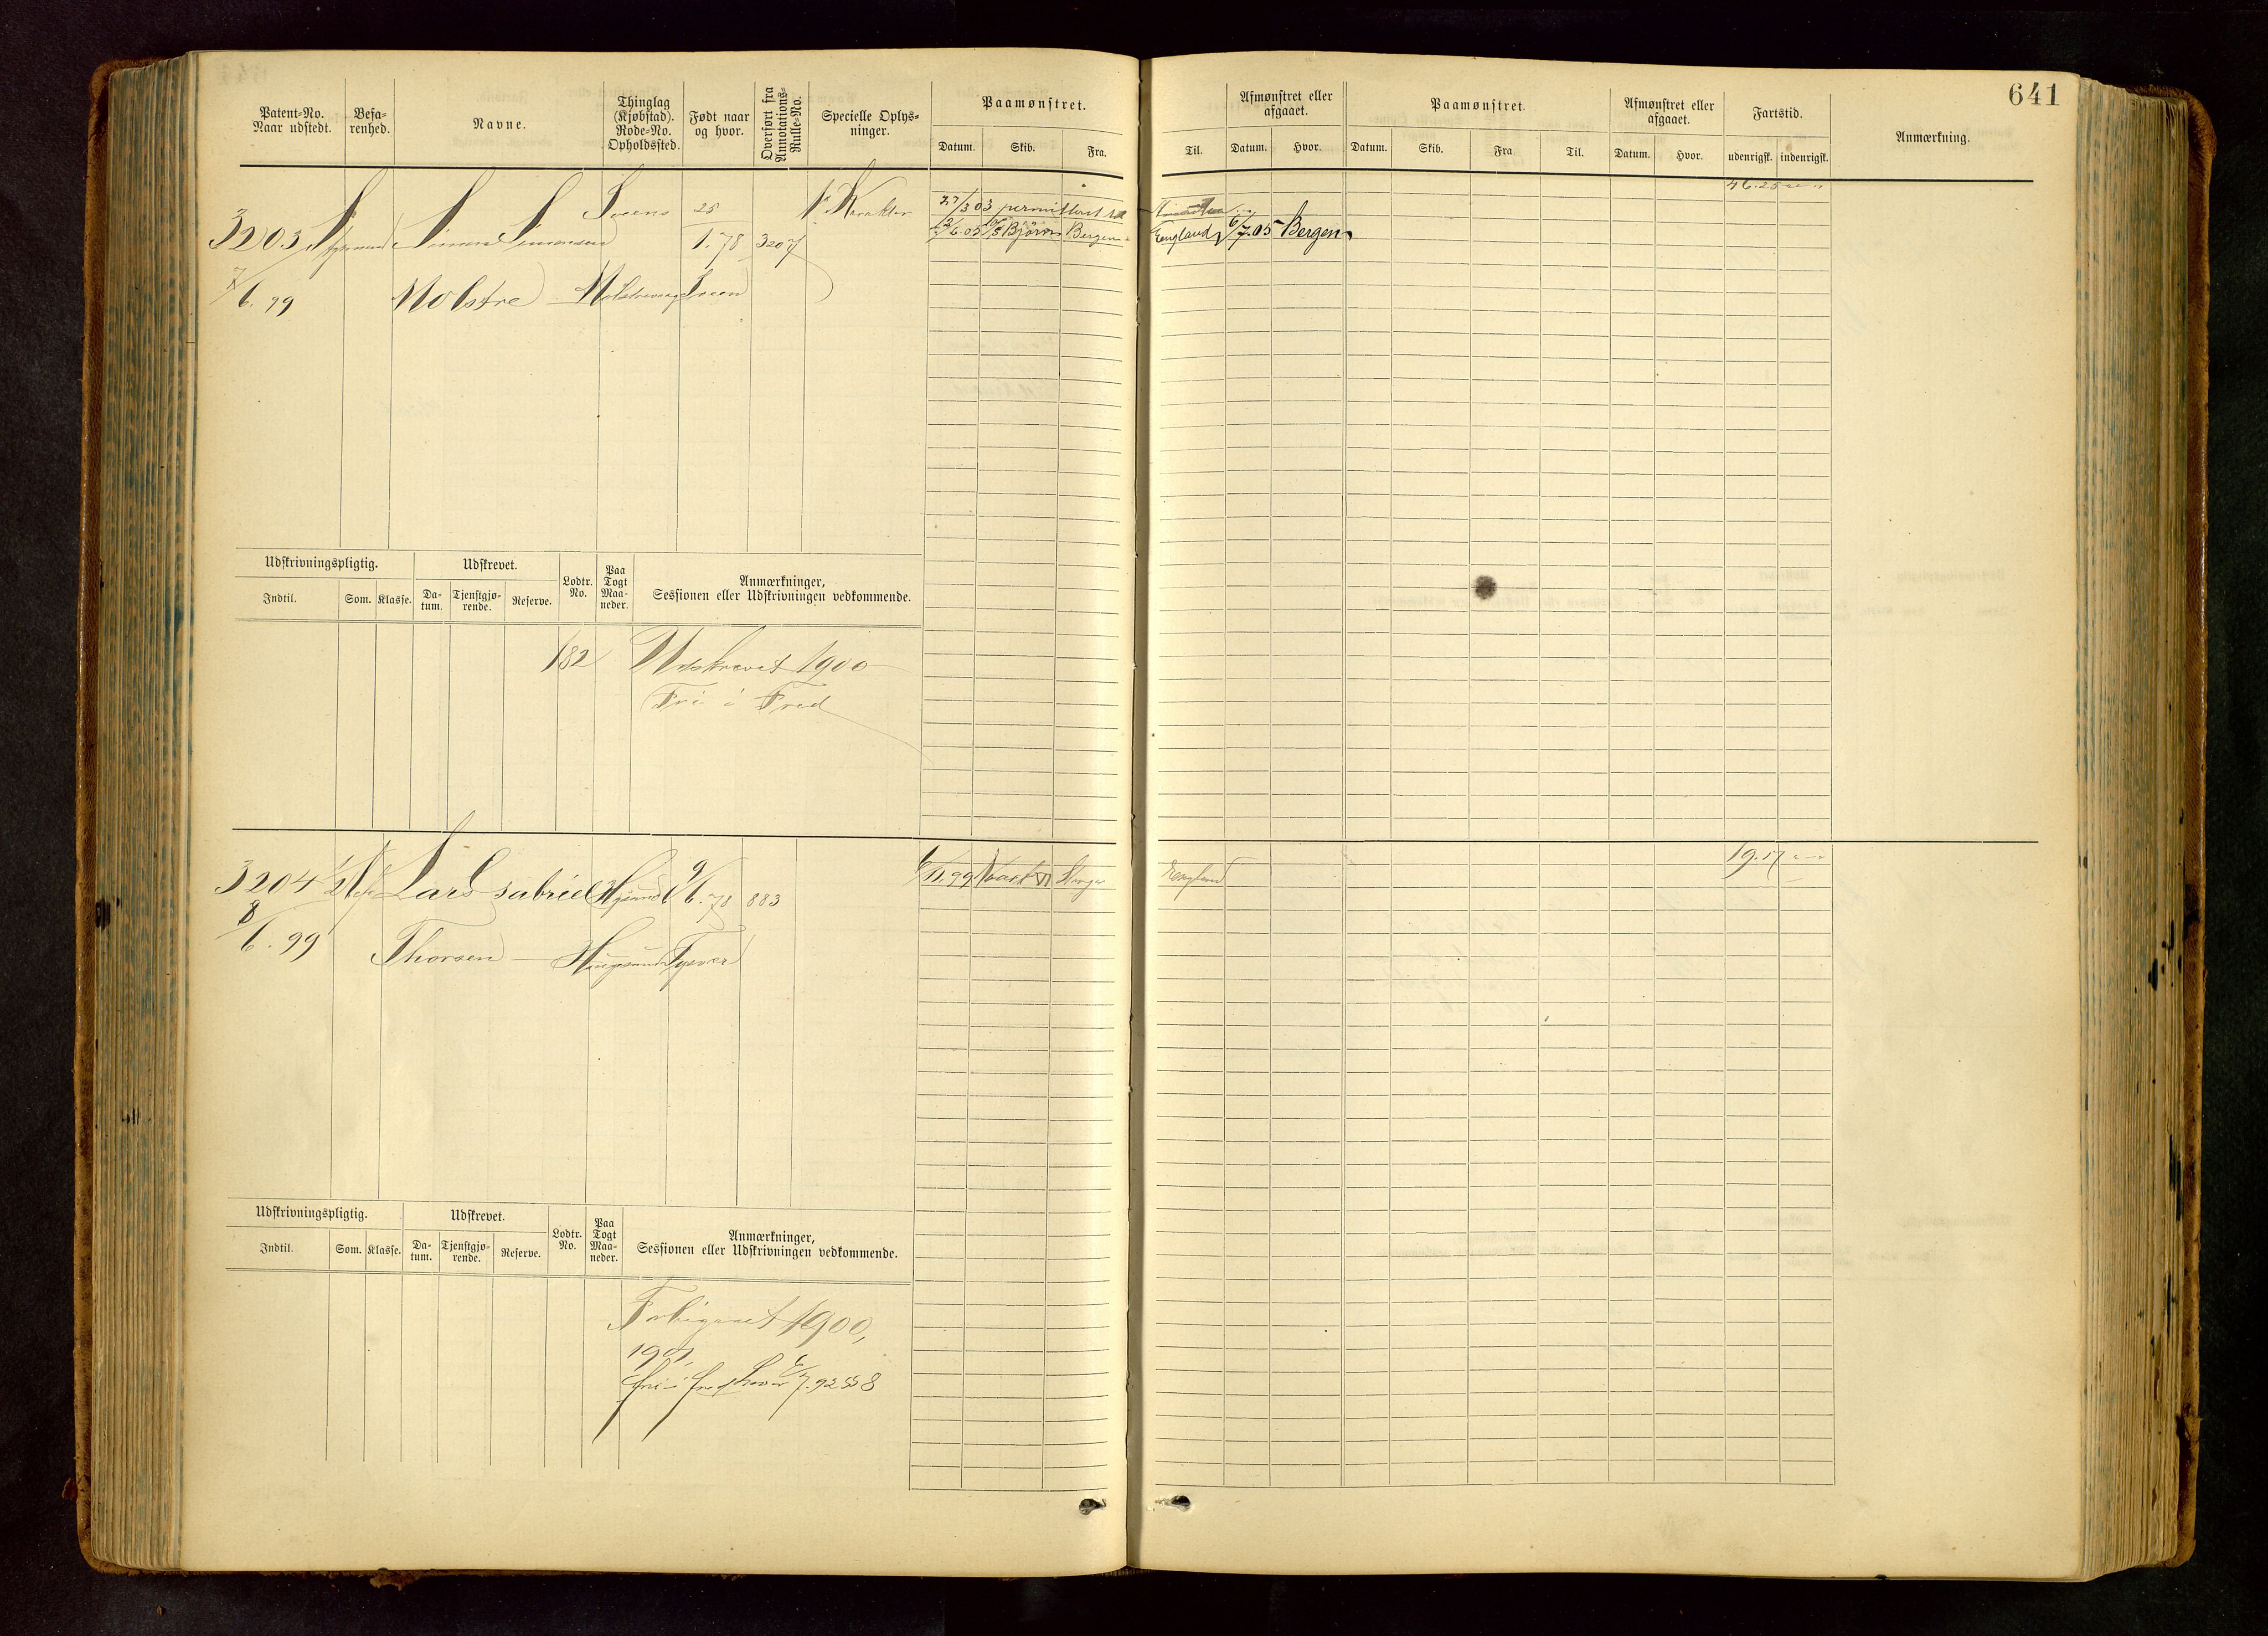 641
Patent-No. Naar udstedt.
Befarenhed.
Navne.
Thinglag (Kjøbstad). Rode-No. Opholdssted.
Født naar og hvor.
Overført fra Annotations-Rulle-No.
Specielle Oplys-ninger.
Paamønstret.
Datum. Skib. Fra.
Til.
Afmønstret eller afgaaet.
Datum. Hvor.
Paamønstret.
Datum. Skib. Fra Til.
Afmønstret eller afgaaet.
Datum. Hvor.
Fartstid.
udenrigsk. indenrigsk.
Anmærkning.
3203 Simon Simonsen Sveens 25/1.78 3207 Karakter
7/6.99 Molstre Sveen
27/3 03 permitteret
6.05 Bjørn Bergen England 6/7.05 Bergen
Udskrivningspligtig. Udskrevet. Lodtr. No. Paa Togt Maa-neder. Anmærkninger, Sessionen eller Udskrivningen vedkommende.
Indtil. Som. Klasse. Da-tum. Tjenstgjø-rende. Reserve.
182 Udskrevet 1900
Fri i Fred
3204 Lars Gabriel 9/6.78 883
8/6.99 Thorsen Tysvær
6/11.99 VI England
Udskrivningspligtig. Udskrevet. Lodtr. No. Paa Togt Maa-neder. Anmærkninger, Sessionen eller Udskrivningen vedkommende.
Indtil. Som. Klasse. Da-tum. Tjenstgjø-rende. Reserve.
Forbigaaet 1900,
1901,
fri i fred Lov 6/7.92 § 8